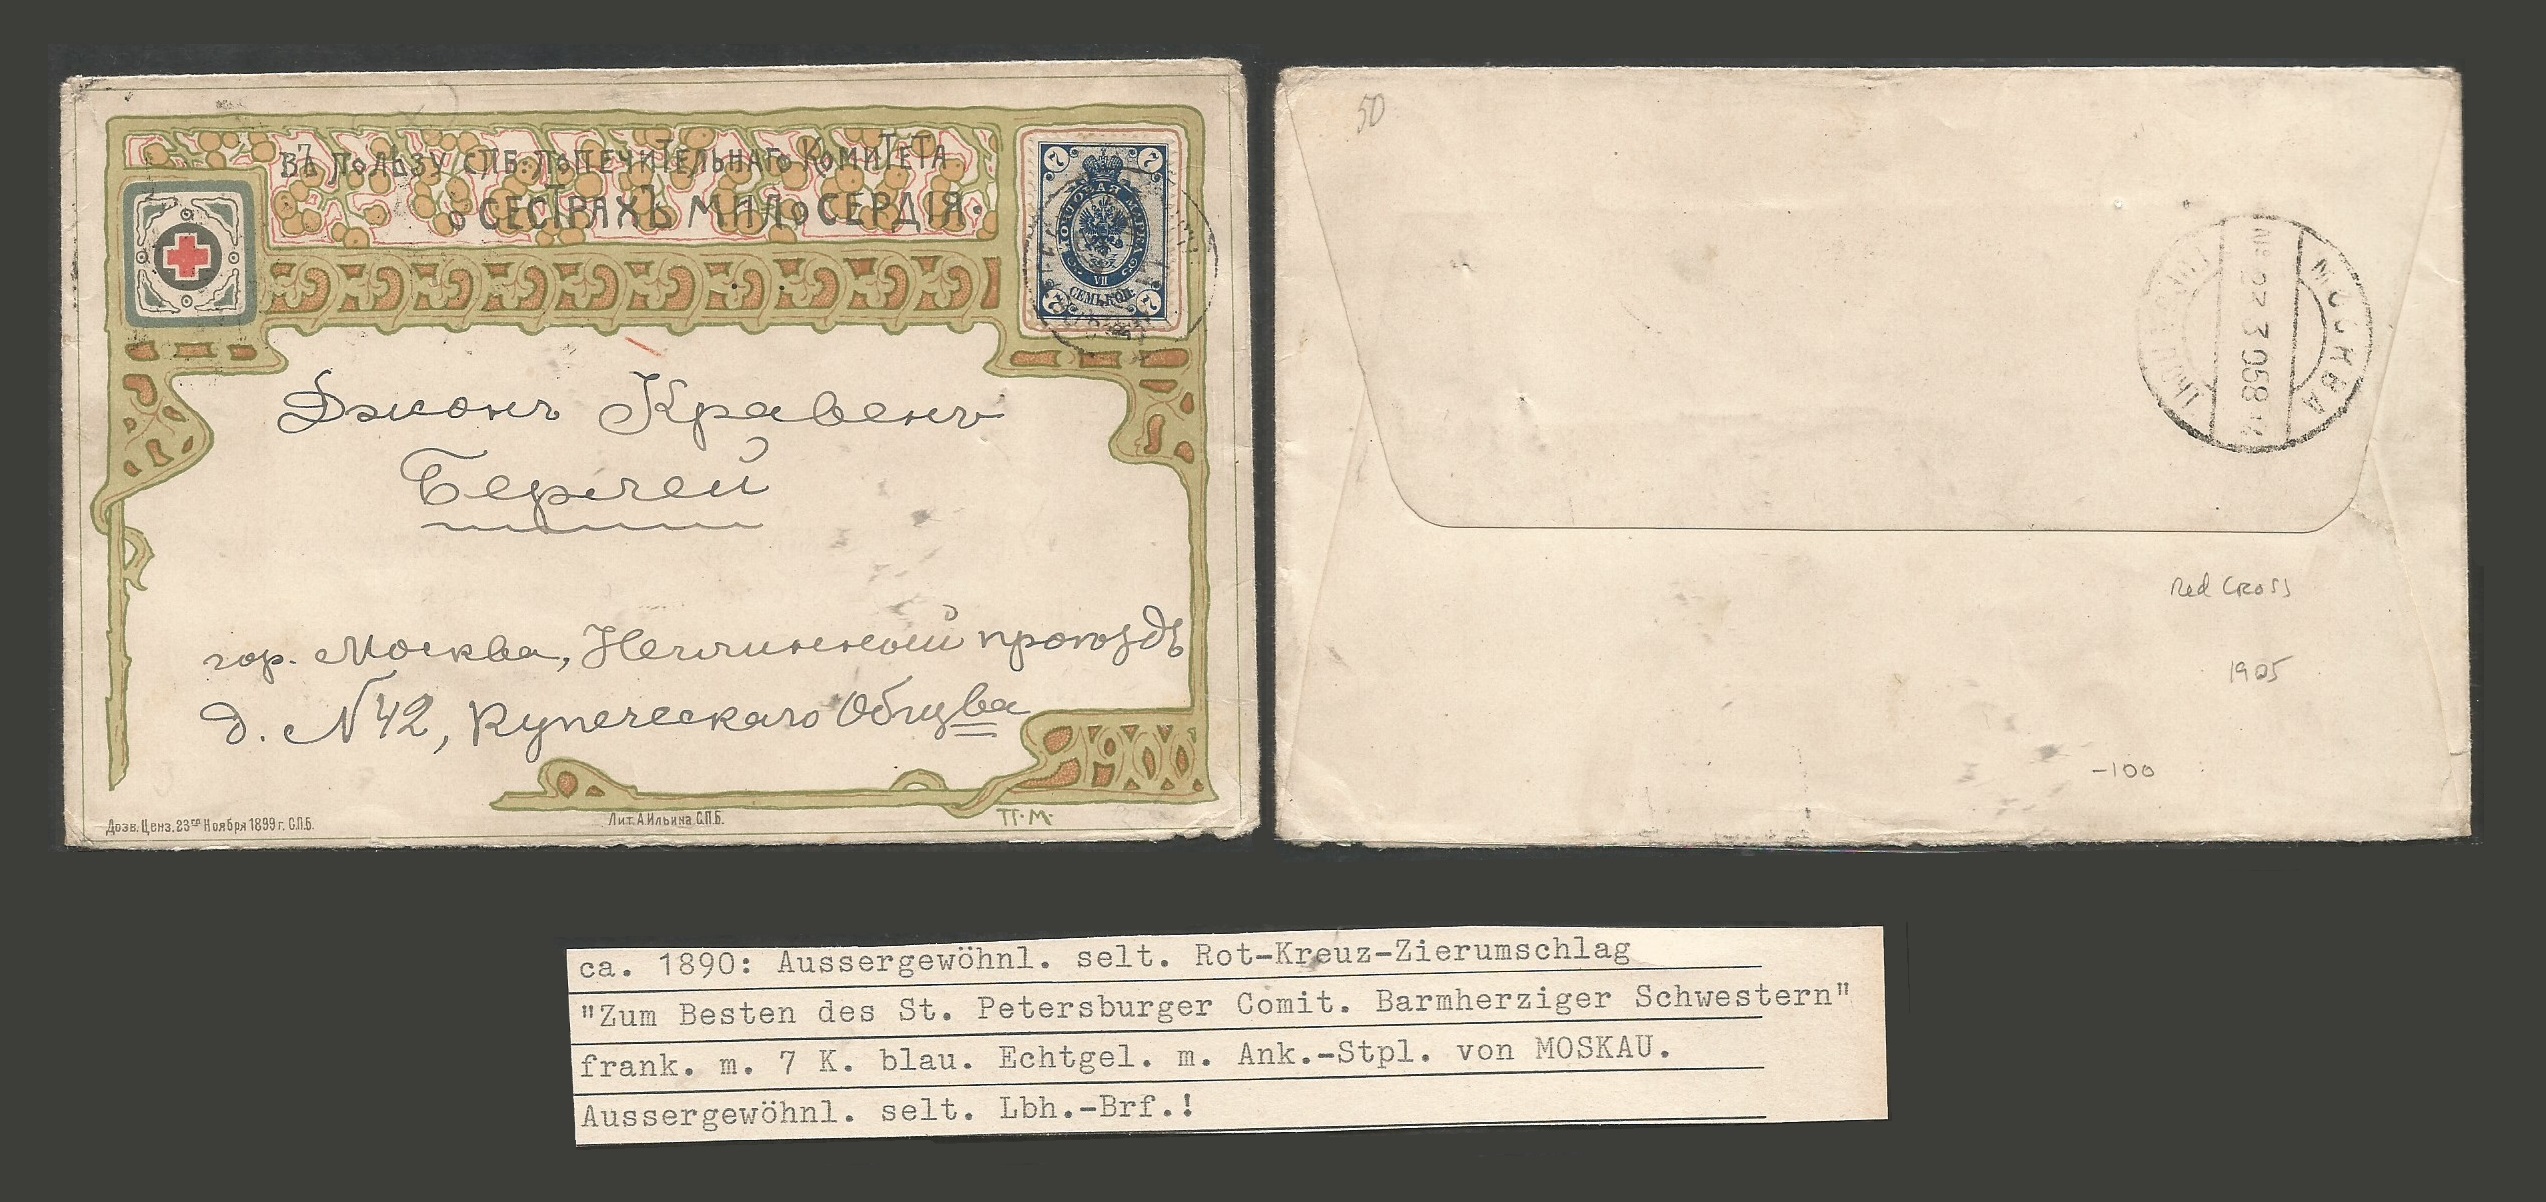 ВЪ ПОЛЬЗУ СПБ. ПОПЕЧИТЕЛЬНАГО КОМИТЕТА
О СЕСТРАХЪ МИЛОСЕРДІЯ.
7 7
ПОЧТОВАЯ МАРКА
VII
СЕМЬ КОП.
7 7
Джонъ Кравенъ
Берчей
гор. Москва, Неглинный проѣздъ
д. №42, Купеческаго Общ_ва
1900
Дозв. Ценз. 23го Ноября 1899 г. С.П.Б.
Лит. А. Ильина С.П.Б.
П.М.
50
МОСКВА
23 3 05 8
Red Cross
1905
-100
ca. 1890: Aussergewöhnl. selt. Rot-Kreuz-Zierumschlag
"Zum Besten des St. Petersburger Comit. Barmherziger Schwestern"
frank. m. 7 K. blau. Echtgel. m. Ank.-Stpl. von MOSKAU.
Aussergewöhnl. selt. Lbh.-Brf.!